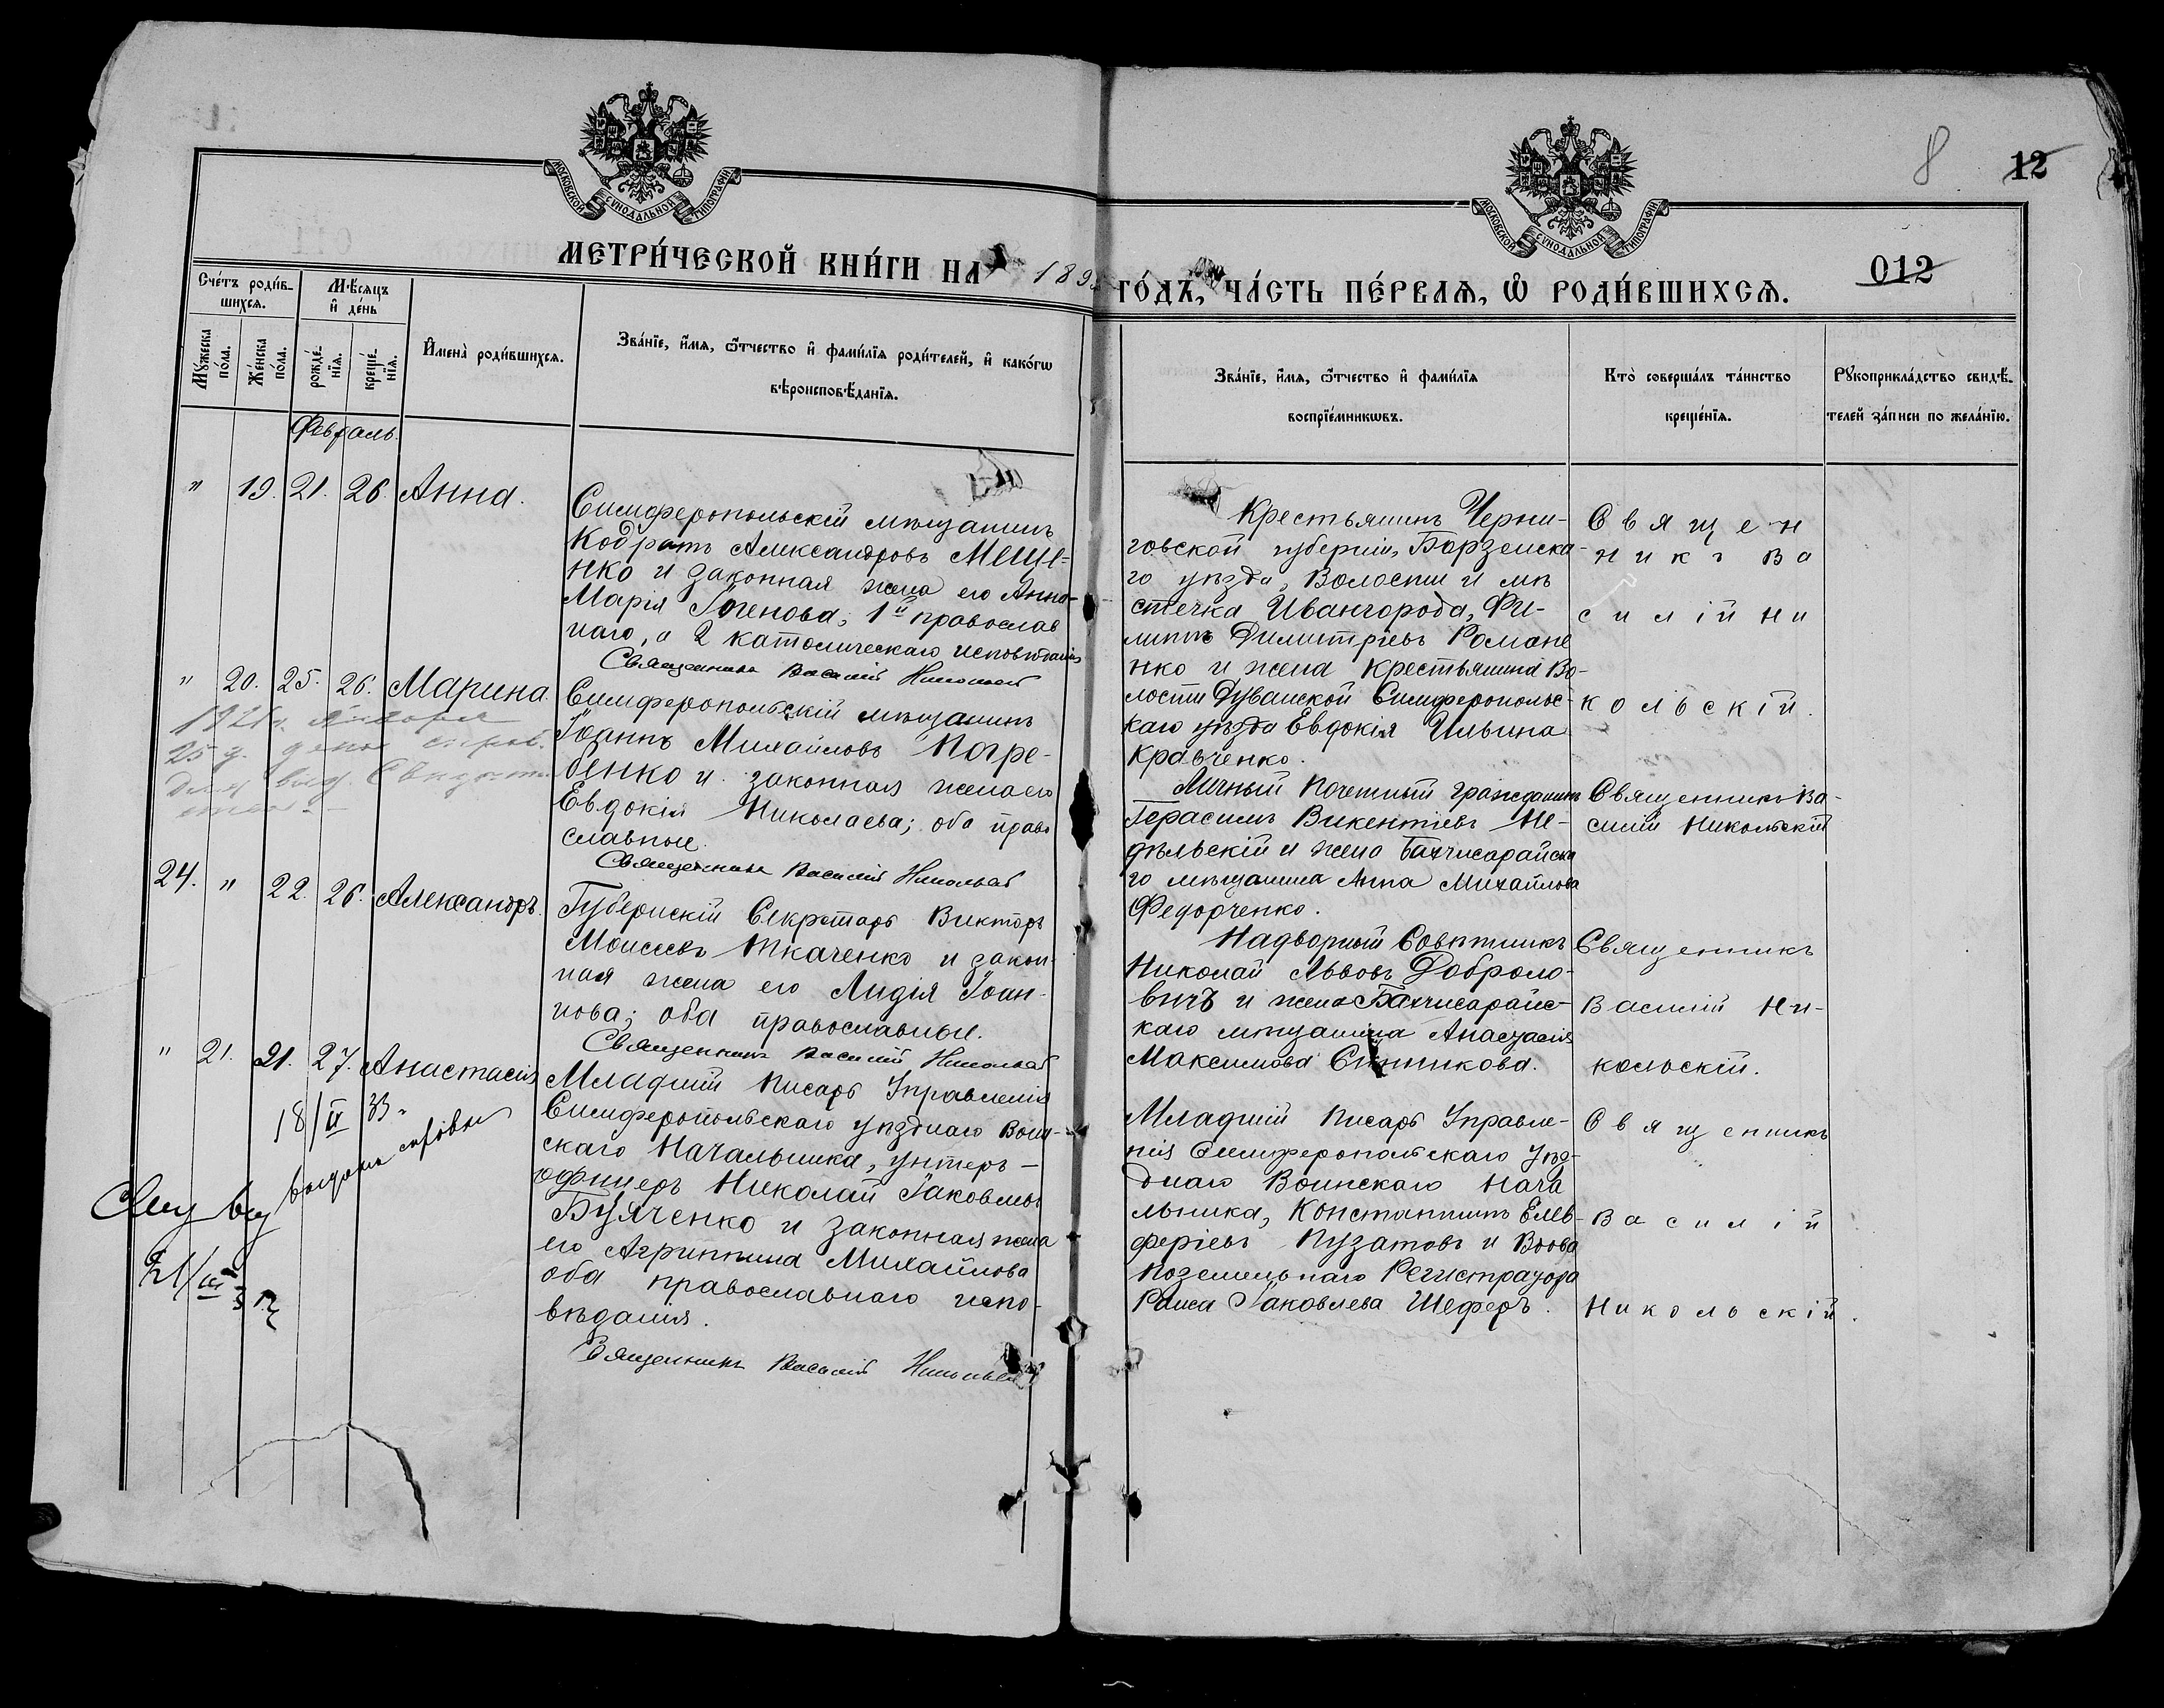 МОСКОВСКОЙ СѴНОДАЛЬНОЙ ТИПОГРАФІИ
МОСКОВСКОЙ СѴНОДАЛЬНОЙ ТИПОГРАФІИ
8 12
012
МЕТРИ́ЧЕСКОЙ КНИ́ГИ НА 189
ГО́ДЪ, ЧА́СТЬ ПЕ́РВАЯ, Ѡ҆ РОДИ́ВШИХСЯ.
Сче́тъ роди́в-
шихся.
Мꙋ́жеска по́ла.
Же́нска по́ла.
Мѣ́сяцъ и҆ де́нь
рожде́-нїѧ.
креще́-нїѧ.
И҆мена̀ роди́вшихся.
Зва́нїе, и҆́мѧ, ѻ҆́тчество и҆ фами́лїѧ роди́телей, и҆ како́гѡ
вѣроисповѣ́данїѧ.
Зва́нїе, и҆́мѧ, ѻ҆́тчество и҆ фами́лїѧ
воспрїе́мникѡвъ.
Кто̀ соверша́лъ та́инство
креще́нїѧ.
Рꙋкоприкла́дство свидѣ́-
телей за́писи по жела́нїю.
Февраль.
" 19. 21. 26. Анна.
Симферопольскій мѣщанинъ
Кодратъ Александровъ Меще-
нко и законная жена его Анна-
Марія 1й православ
наго, а 2 католическаго исповѣданія
Священникъ Василій Никольскій
Крестьянинъ Черни-
говской губерніи, Борзенска-
го уѣзда, Волости и мѣ
стечка Ивангорода, Фи-
липпъ Димитріевъ Романе
нко и жена крестьянина Во-
лости Дуванской Симферопольс-
каго уѣзда Евдокія Ильина
Кравченко.
Священ
никъ Ва
силій Ни
кольскій.
" 20. 25. 26. Марина.
Симферопольскій мѣщанинъ
Іоаннъ Михайловъ Погре-
бенко и законная жена его
Евдокія Николаева; оба право
славные.
Священникъ Василій Никольскій
Личный Почетный гражданинъ
Герасимъ Викентіевъ Не-
дѣльскій и жена Бахчисарайска
го мѣщанина Анна Михайлова
Федорченко.
Священникъ Ва-
силій Никольскій
25
24. " 22. 26. Александръ.
Губернскій Секретарь Викторъ
Моисеевъ Ткаченко и закон-
ная жена его Лидія Іоан-
нова; оба православные.
Священникъ Василій Никольскій
Надворный Совѣтникъ
Николай Львовъ Добропо-
вичъ и жена Бахчисарайс-
каго мѣщанина Анастасія
Максимова Ситникова.
Священникъ
Василій Ни-
кольскій.
" 21. 21. 27. Анастасія
Младшій Писарь Управленія
Симферопольскаго уѣзднаго Воин-
скаго Начальника, унтеръ-
офицеръ Николай Іаковлевъ
Буяченко и законная жена
его Агриппина Михайлова
оба православнаго испо-
вѣданія.
Священникъ Василій Никольскій
Младшій Писарь Управле-
нія Симферопольскаго Уѣз-
днаго Воинскаго Нача
льника, Константинъ Елев-
феріевъ Пузатовъ и Вдова
Коземельнаго Регистратора
Раиса Іаковлева Шеферъ.
Священникъ
Василій
Никольскій.
18/II 33
21/III